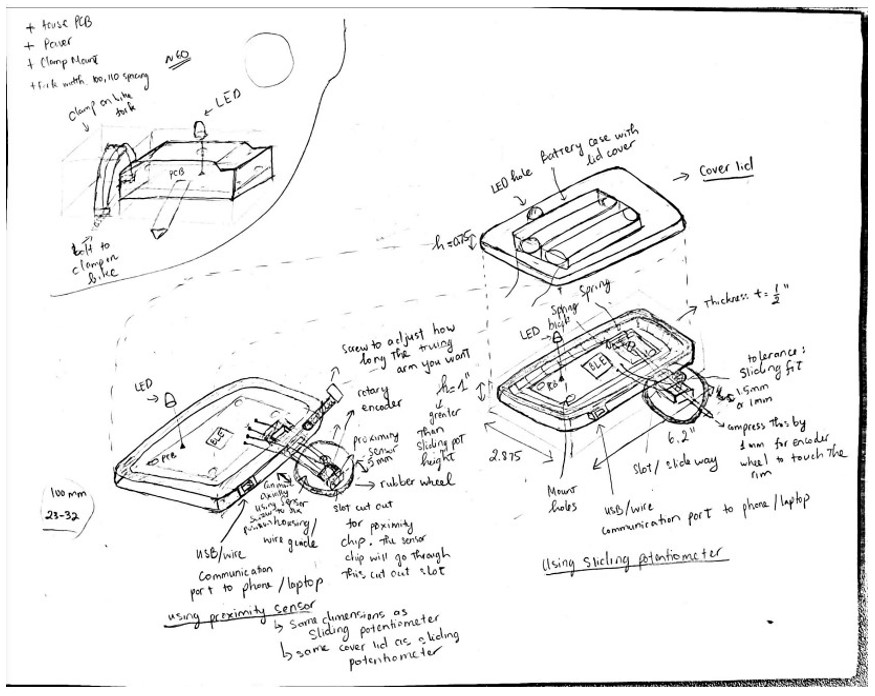 + House PCB
+ Power
+ Clamp Mount
+ Fork width 100, 110 spacing
N60
Clamp on bike
fork
LED
PCB
bolt to
clamp on
bike
LED hole
Battery case with
lid cover
Cover lid
h = 0.75
Spring
Spring
LED
Thickness t = 1/2"
BLE
PCB
tolerance:
sliding fit
1.5mm
or 1mm
compress this by
1mm for encoder
wheel to touch the
rim
6.2"
2.875
Slot / slide way
Mount
holes
USB/wire
communication port to phone / laptop
Using sliding potentiometer
Screw to adjust how
long the truing
arm you want
h = 1"
greater
than
sliding pot
height
rotary
encoder
proximity
sensor
5mm
rubber wheel
LED
PCB
BLE
can move
axially
using sensor
housing /
wire guide
slot cut out
for poximity
chip. The sensor
chip will go through
this cut out slot
100mm
23-32
USB/wire
communication
port to phone / laptop
using proximity sensor
↳ Same dimensions as
sliding potentiometer
↳ same cover lid as sliding
potentiometer